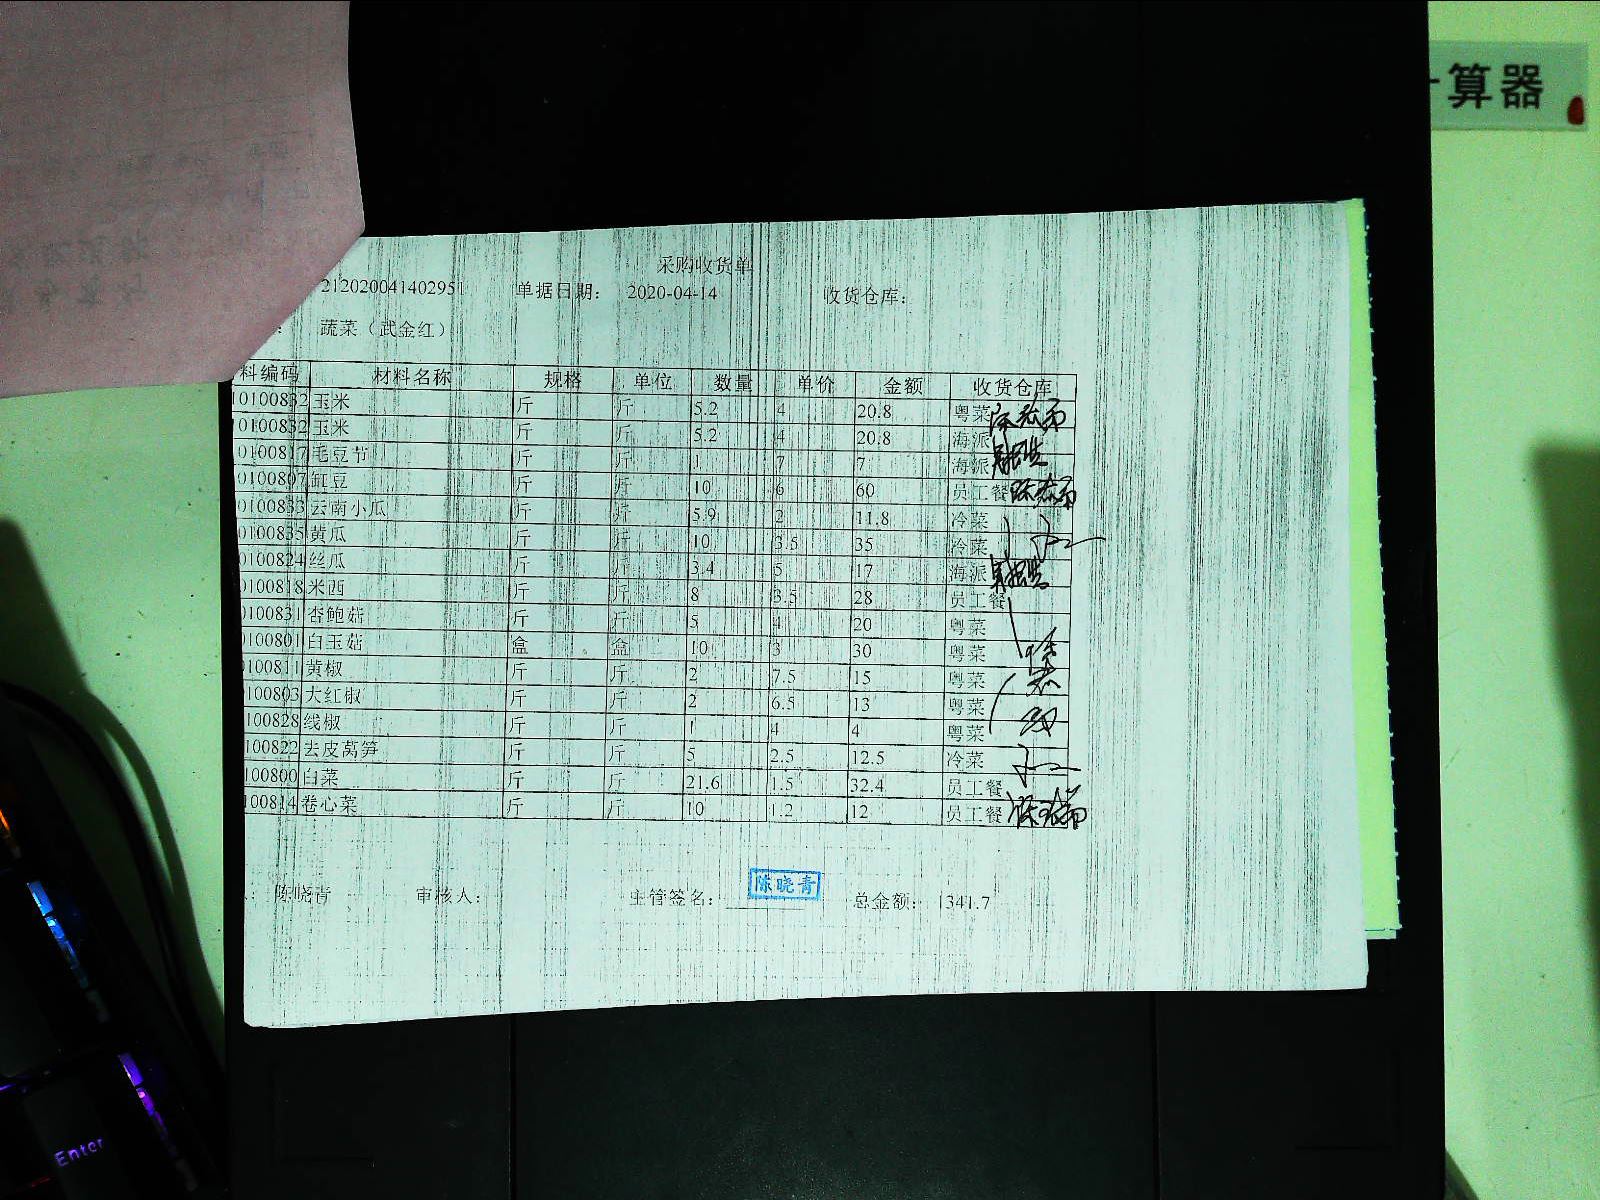 计算器
采购收货单
212020041402951 单据日期： 2020-04-14 收货仓库：
蔬菜（武金红）
料编码 材料名称 规格 单位 数量 单价 金额 收货仓库
10100832 玉米 斤 斤 5.2 4 20.8 粤菜
0100832 玉米 斤 斤 5.2 4 20.8 海派
0100817 毛豆节 斤 斤 1 7 7 海派
0100807 缸豆 斤 斤 10 6 60 员工餐
0100833 云南小瓜 斤 斤 5.9 2 11.8 冷菜
0100835 黄瓜 斤 斤 10 3.5 35 冷菜
0100824 丝瓜 斤 斤 3.4 5 17 海派
0100818 米西 斤 斤 8 3.5 28 员工餐
0100831 杏鲍菇 斤 斤 5 4 20 粤菜
0100801 白玉菇 盒 盒 10 3 30 粤菜
0100811 黄椒 斤 斤 2 7.5 15 粤菜
0100803 大红椒 斤 斤 2 6.5 13 粤菜
100828 线椒 斤 斤 1 4 4 粤菜
100822 去皮莴笋 斤 斤 5 2.5 12.5 冷菜
100800 白菜 斤 斤 21.6 1.5 32.4 员工餐
100814 卷心菜 斤 斤 10 1.2 12 员工餐
陈晓青 审核人： 主管签名： 陈晓青 总金额： 1341.7
Enter